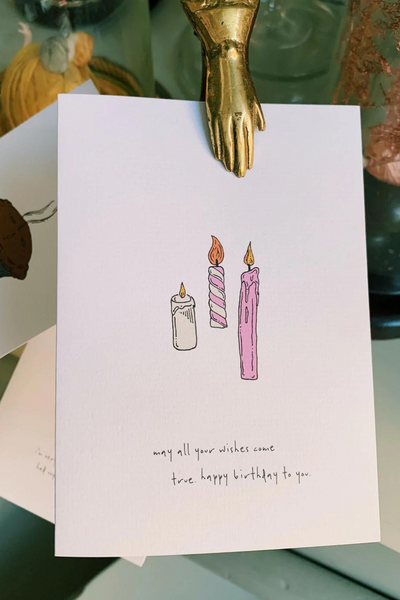 may all your wishes come
true. happy birthday to you.